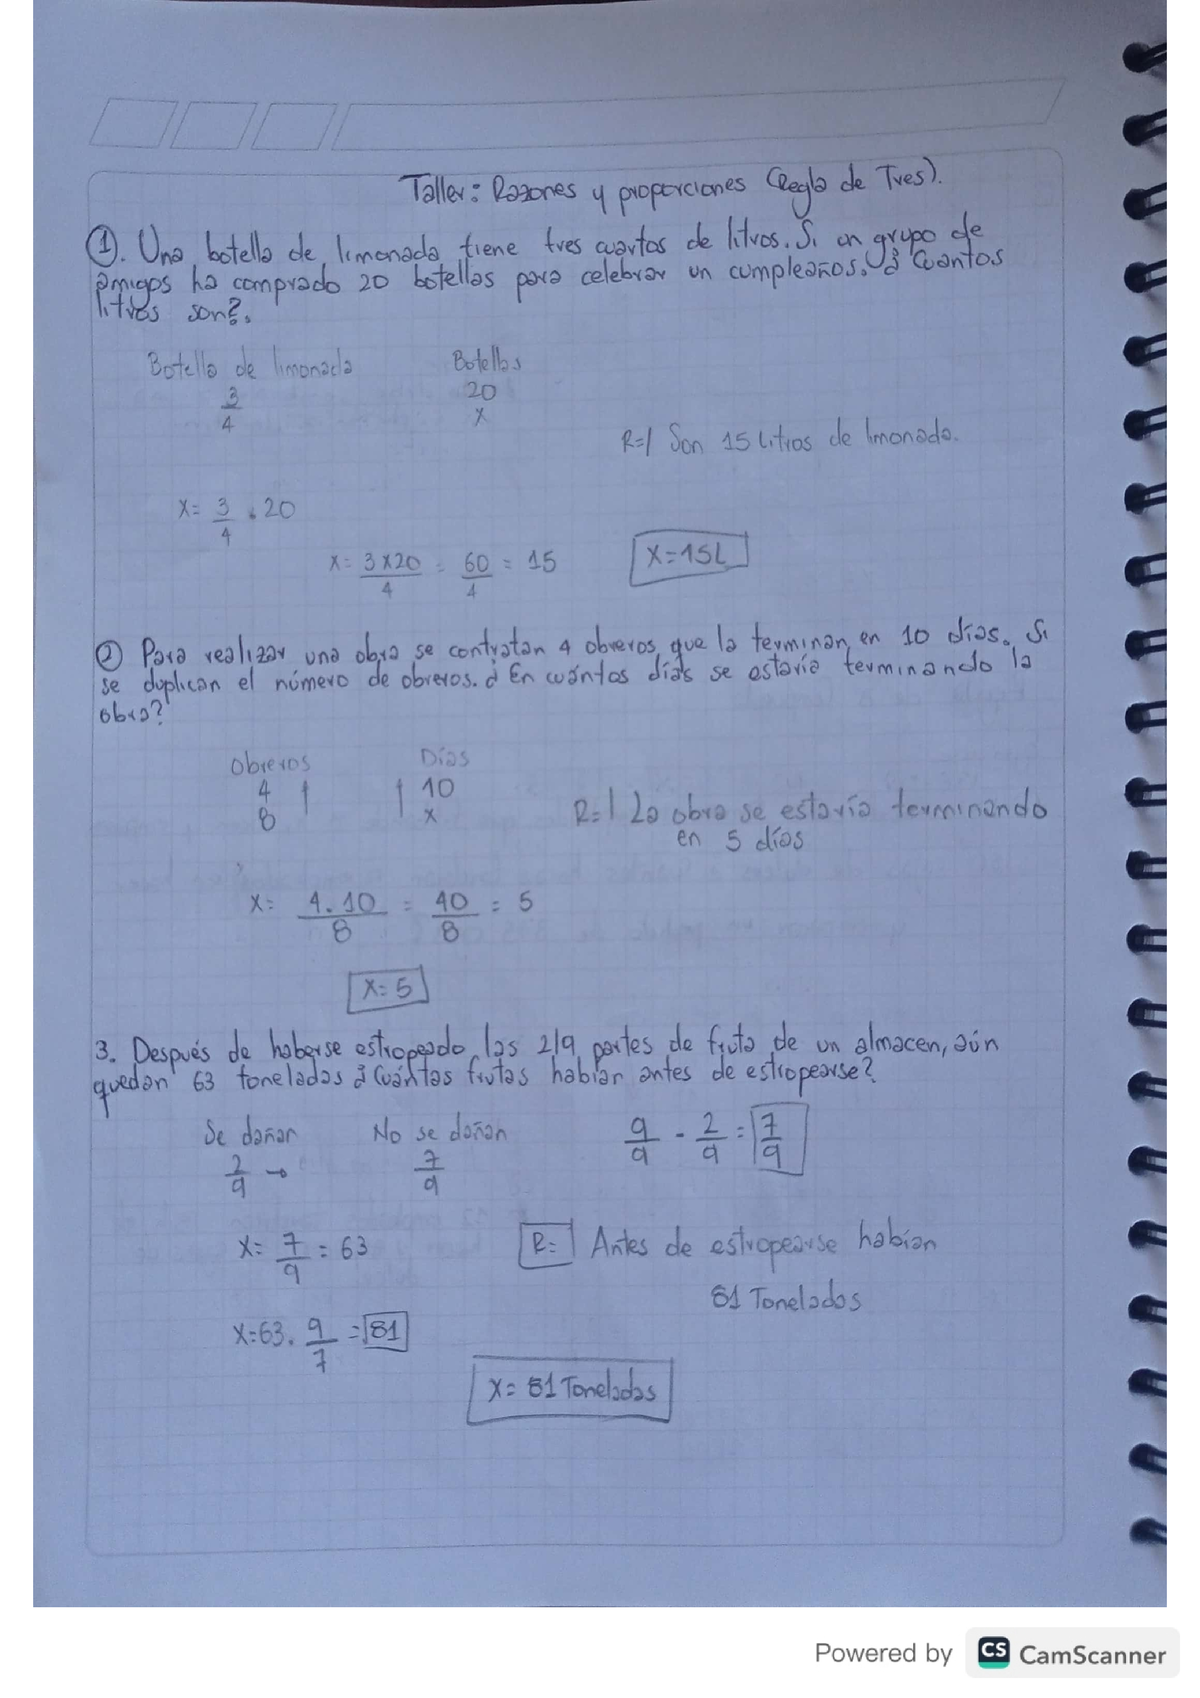 Taller: Razones y proporciones (Regla de Tres).
①. Una botella de limonada tiene tres cuartos de litros. Si un grupo de
amigos ha comprado 20 botellas para celebrar un cumpleaños. ¿Cuantos
litros son?.
Botella de limonada Botellas
3/4 20
x
R=/ Son 15 Litros de limonada.
X= 3/4 . 20
X= 3x20/4 = 60/4 = 15 X=15L
② Para realizar una obra se contratan 4 obreros que la terminan en 10 días. Si
se duplican el número de obreros. ¿En cuántos días se estaría terminando la
obra?
Obreros Días
4 ↑ ↑ 10
8 x
R=/ La obra se estaría terminando
en 5 días
X= 4.10/8 = 40/8 = 5
X=5
3. Después de haberse estropeado las 2/9 partes de fruta de un almacen, aún
quedan 63 toneladas ¿Cuántas frutas habían antes de estropearse?
Se dañan No se dañan 9/9 - 2/9 = 7/9
2/9 → 7/9
X= 7/9 = 63 R= Antes de estropearse habían
81 Toneladas
X=63. 9/7 = 81
X= 81 Toneladas
Powered by CS CamScanner